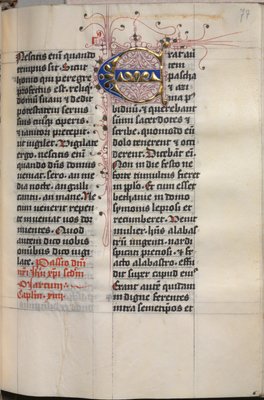 77
Nescitis enī quando
tempus sit. Sicut
homo qui peregre
profectus est. reliq̄t
domū suam et dedit
potestatem servis
suis cuiusq̨ operis.
et ianitori precepit
ut vigilet. Vigilate
ergo. nescitis enī
quando dn̄s domus
veniat. sero. an me
dia nocte. an galli
cantu. an mane. Ne
cum venerit repen
te inveniat vos dor
mientes. Quod
autem dico vobis
omnibus dico vigi
late. Passio dn̄i
nr̄i ihū xp̄i scd̄m
Marcum.
Caplm̄. xiiij.
Erat au
tem
pascha
et azi
ma p̄
biduū. et querebant
sum̄i sacerdotes et
scribe. quomodo eū
dolo tenerent et occi
derent. Dicebāt eī.
Non in die festo ne
forte tumultus fieret
in pplō. Et cum esset
bethanie in domo
symonis leprosi et
recumberet. Venit
mulier. hn̄s alabas
trū ungenti. nardi
spicati preciosi. et fr
acto alabastro. effu
dit super caput eiꝰ.
Erant autē quidam
indigne ferentes
intra semetipsos et